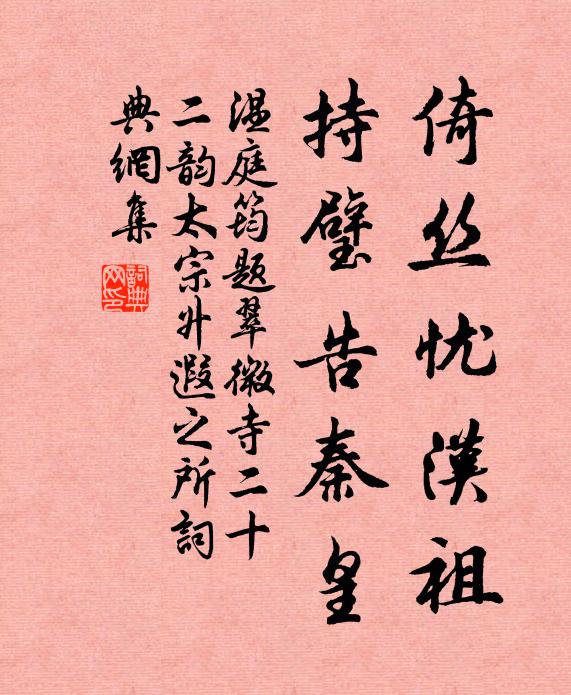 倚丝忧漢祖
持璧告秦皇
温庭筠题翠微寺二十
二韵太宗升遐之所詞
典網集
詞典网印